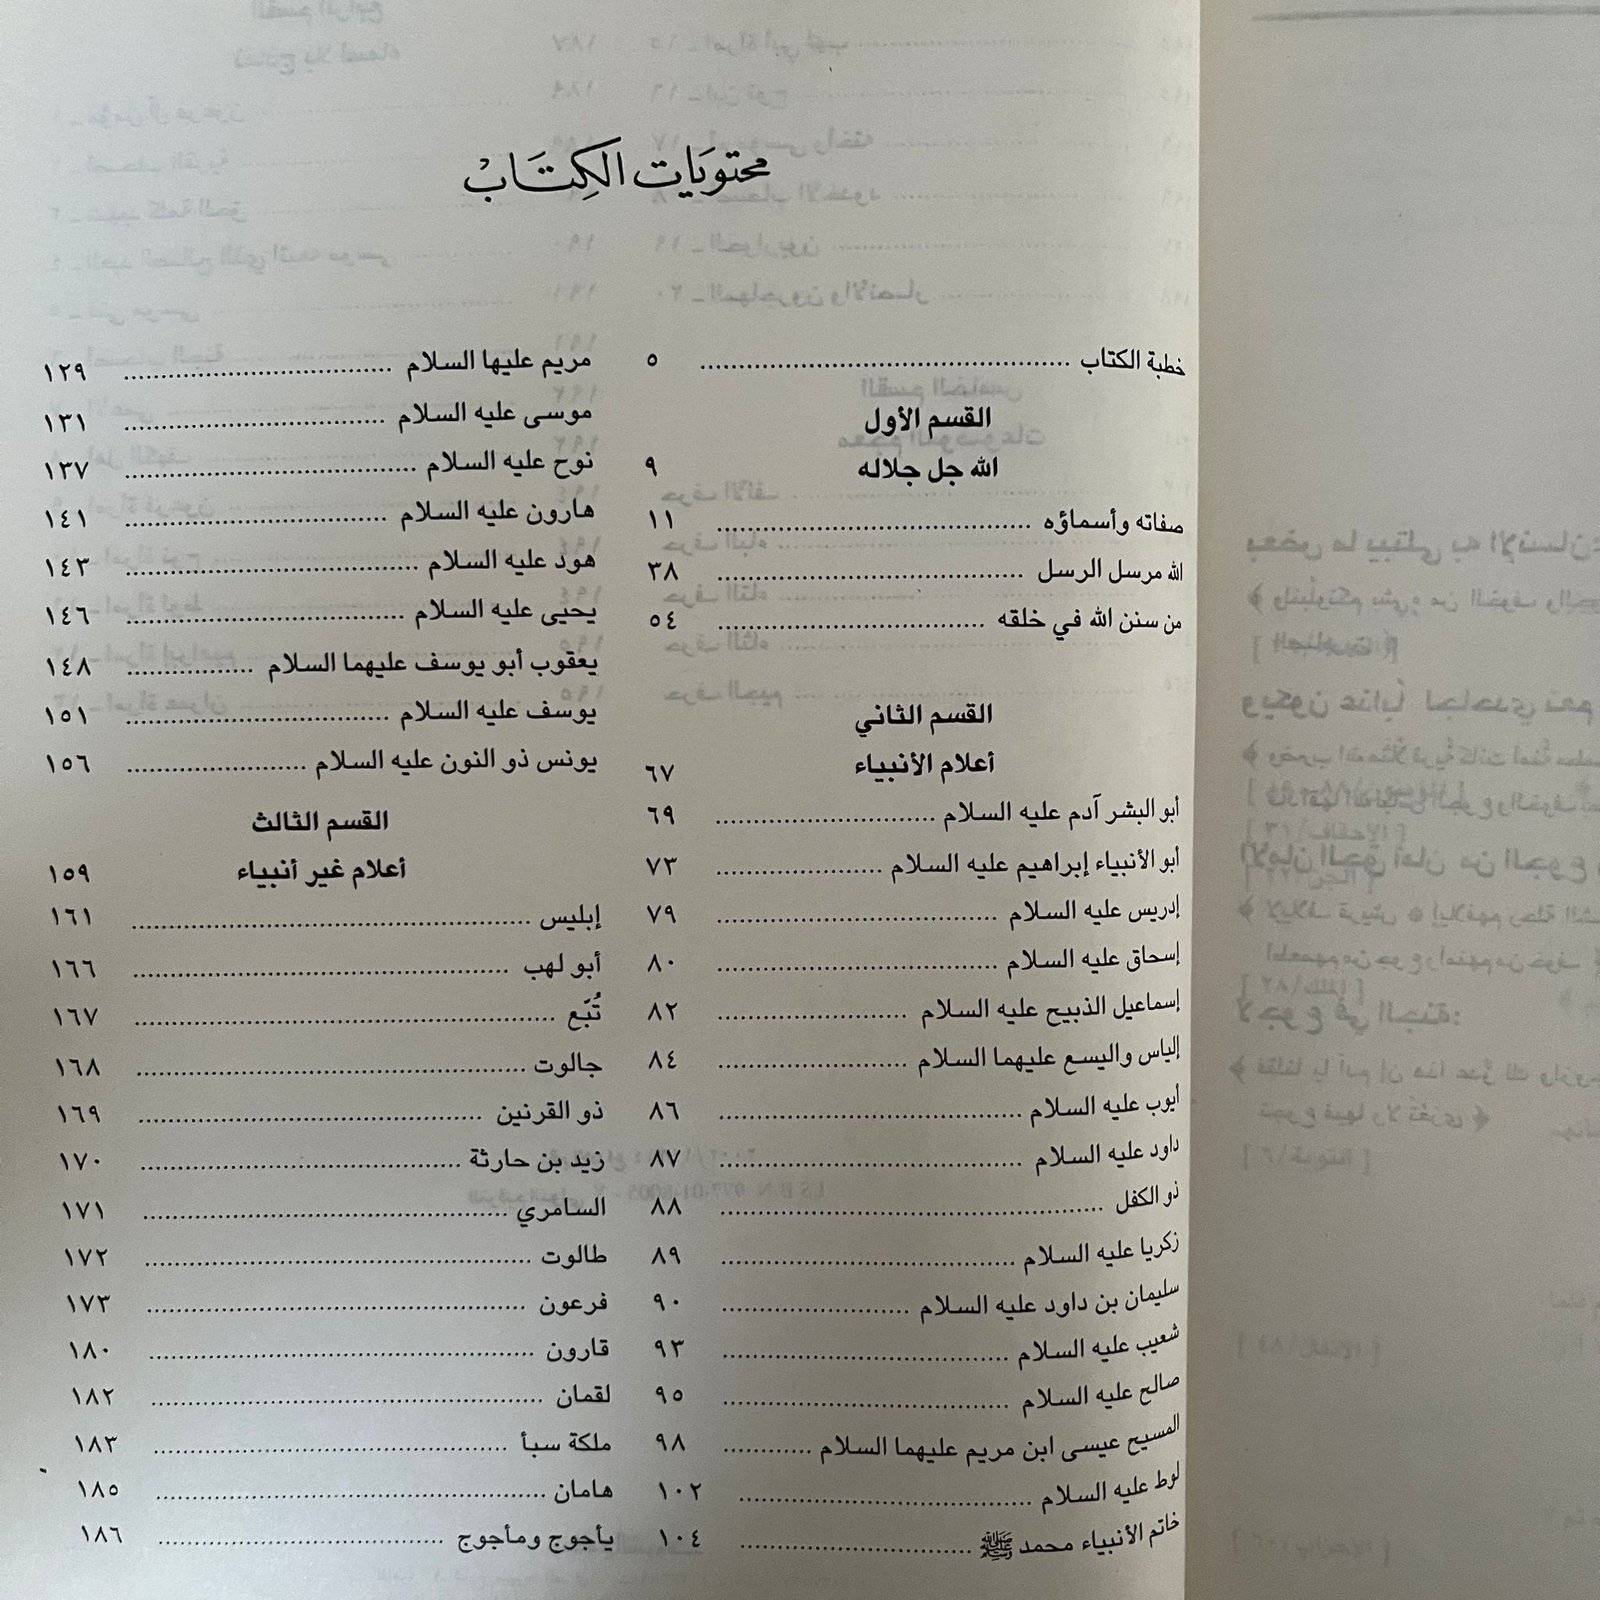 محتويات الكتاب
خطبة الكتاب ........ ٥
القسم الأول
الله جل جلاله ٩
صفاته وأسماؤه ........ ١١
الله مرسل الرسل ........ ٣٨
من سنن الله في خلقه ........ ٥٤
القسم الثاني
أعلام الأنبياء ٦٧
أبو البشر آدم عليه السلام ........ ٦٩
أبو الأنبياء إبراهيم عليه السلام ........ ٧٣
إدريس عليه السلام ........ ٧٩
إسحاق عليه السلام ........ ٨٠
إسماعيل الذبيح عليه السلام ........ ٨٢
إلياس واليسع عليهما السلام ........ ٨٤
أيوب عليه السلام ........ ٨٦
داود عليه السلام ........ ٨٧
ذو الكفل ........ ٨٨
زكريا عليه السلام ........ ٨٩
سليمان بن داود عليه السلام ........ ٩٠
شعيب عليه السلام ........ ٩٣
صالح عليه السلام ........ ٩٥
المسيح عيسى ابن مريم عليهما السلام ........ ٩٨
لوط عليه السلام ........ ١٠٢
خاتم الأنبياء محمد ﷺ ........ ١٠٤
مريم عليها السلام ........ ١٢٩
موسى عليه السلام ........ ١٣١
نوح عليه السلام ........ ١٣٧
هارون عليه السلام ........ ١٤١
هود عليه السلام ........ ١٤٣
يحيى عليه السلام ........ ١٤٦
يعقوب أبو يوسف عليهما السلام ........ ١٤٨
يوسف عليه السلام ........ ١٥١
يونس ذو النون عليه السلام ........ ١٥٦
القسم الثالث
أعلام غير أنبياء ١٥٩
إبليس ........ ١٦١
أبو لهب ........ ١٦٦
تُبّع ........ ١٦٧
جالوت ........ ١٦٨
ذو القرنين ........ ١٦٩
زيد بن حارثة ........ ١٧٠
السامري ........ ١٧١
طالوت ........ ١٧٢
فرعون ........ ١٧٣
قارون ........ ١٨٠
لقمان ........ ١٨٢
ملكة سبأ ........ ١٨٣
هامان ........ ١٨٥
يأجوج ومأجوج ........ ١٨٦